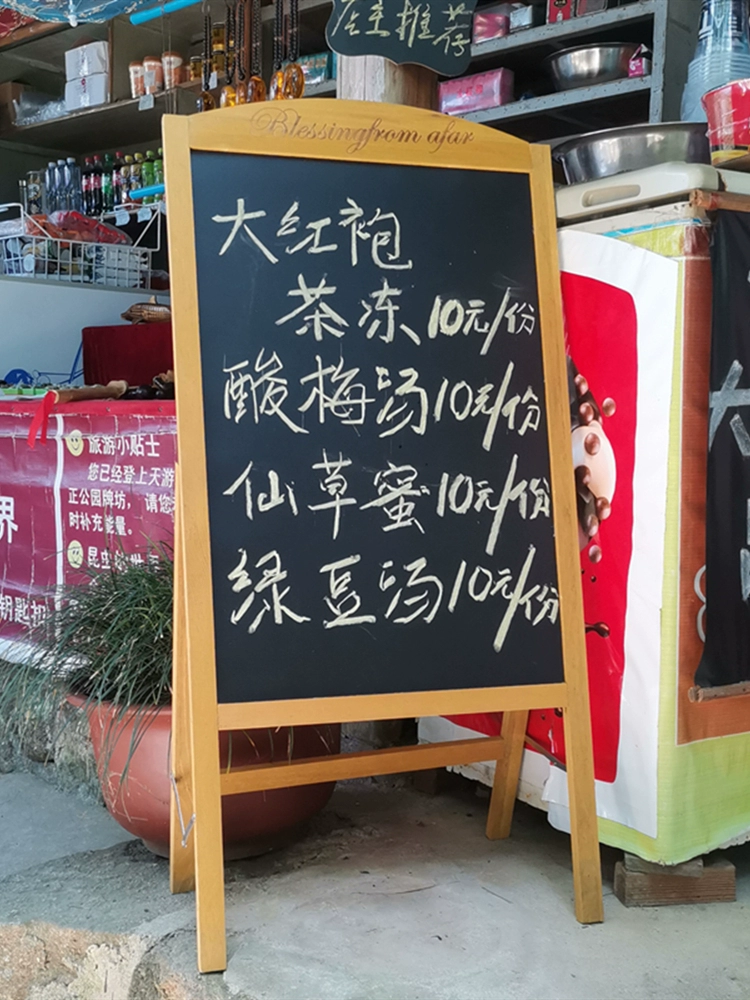 店主推荐
Blessingfrom afar
大红袍
茶冻10元/份
酸梅汤10元/份
仙草蜜10元/份
绿豆汤10元/份
旅游小贴士
您已经登上天游
正公园牌坊，请您
时补充能量。
界
昆虫
钥匙扣